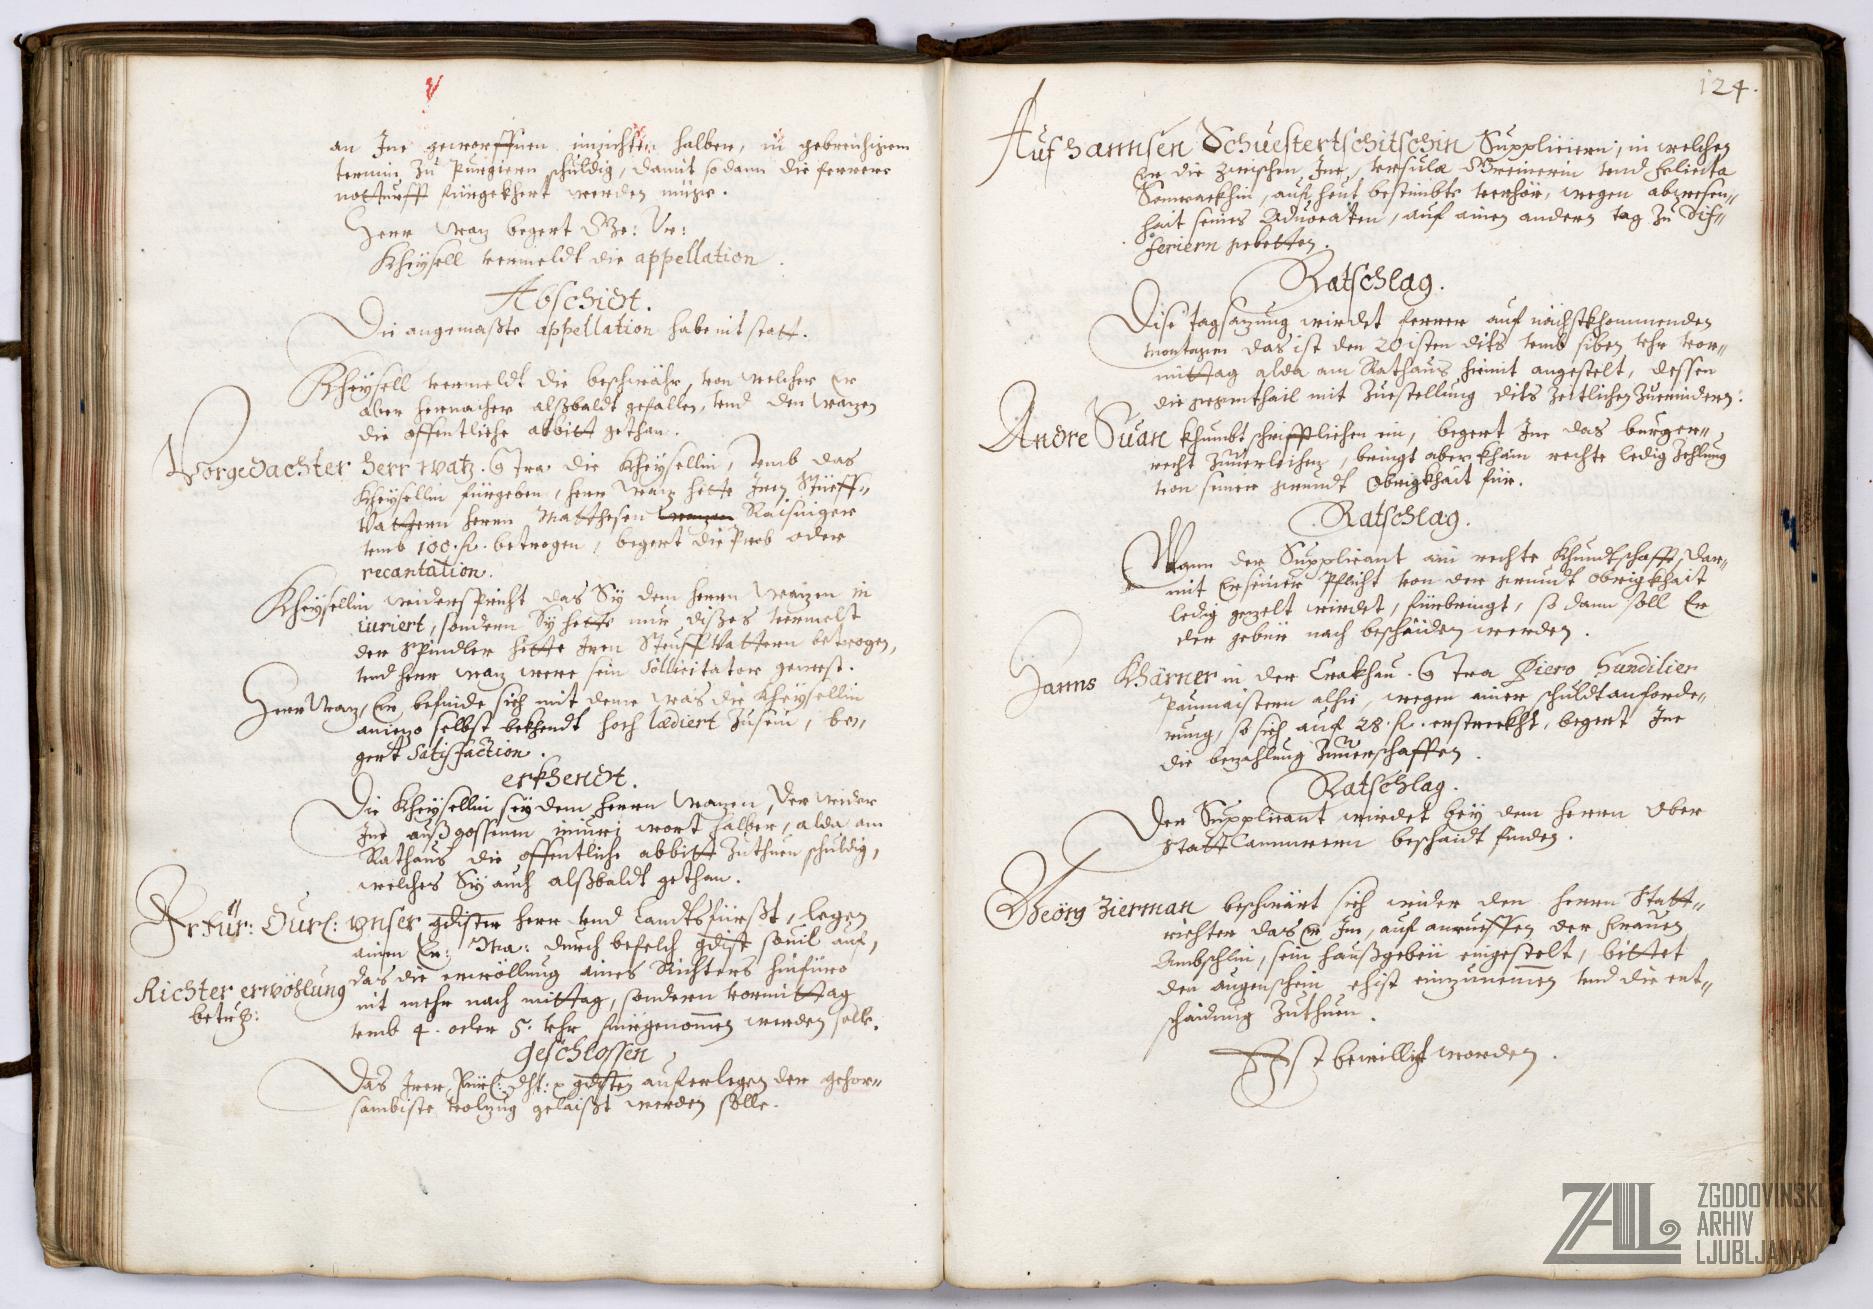 an Ine geworffnen inzichten halben, in gebreichigem
termin zu Purgiern schuldig, damit sodann die ferrere
notturfft fürgekhert werden müge.
Herr Waz begert Gze: Ur:
Kheÿsell vermeldt die appellation.
Abschidt.
Die angemaßte appellation habe nit statt.
Kheÿsell vermeldt die beschwähr, von welcher Er
aber hernacher alßbaldt gefallen, vnd den Wazen
die offentliche abbitt gethan.
Vorgedachter Herr Watz. Cтra die Kheÿsellin, vmb das
Kheÿsellin fürgeben, herr Waz hette Iren Stieff-
Vattern herrn Matthesen Raisinger
vmb 100. fl. betrogen, begert die Prob oder
recantation.
Kheÿsellin widerspricht das Sÿ dem herrn Wazen in
iuriert, sondern Sÿ hette nur dißes vermelt
der Spindler hette Iren Steuff Vattern betrogen,
vnd herr Waz were sein Sollicitator gewest.
Herr Waz, Er befinde sich mit deme was die Kheÿsellin
aniezo selbst bekhendt hoch lædiert zusein, be-
gert Satisfaction.
erkhendt.
Die Kheÿsellin seÿ dem herrn Wazen, der wider
Ine außgossenen iniuri wort halber, alda am
Rathaus die offentliche abbitt zuthuen schuldig,
welches Sÿ auch alßbaldt gethan.
Ir Für: Durl: Vnser gdister herr vnd Landtsfürßt, legen
ainem Er: Ma: durch befelch gdist souil auf,
Richter erwöhlung
betr:
das die erwöllung aines Richters hinfüro
nit mehr nach mittag, sondern vormittag
vmb 4. oder 5. Vhr fürgenomen werden solle.
geschlossen
Das Irer Fürl: Dht: gdisten auferlegen der gehor-
sambiste volzug gelaißt werden solle.
124.
Auf Hannsen Schuestertschitschin Suppliciern, in welchen
Er die zwischen Ine, Vrsula Greinerin vnd Felicita
Somrackhin, auf heut bestimbte verhör, wegen abwesen-
hait seines Aduocaten, auf ainen andern tag zu dif-
feriern gebetten.
Ratschlag.
Dise tagsazung wirdet ferrer auf nächstkhommenden
Montagen das ist den 20isten dits vmb siben Vhr vor-
mittag alda am Rathaus hiemit angestelt, dessen
die gegenthail mit zuestellung dits zeitlichen zuerindern.
Andre Suan khumbt schrifftlichen ein, begert Ine das burger-
recht zuuerleihen, bringt aber khain rechte ledig zehlung
von seiner grundt Obrigkhait für.
Ratschlag.
Wann der Supplicant ain rechte Khundtschafft, dar-
mit Er seiner Pflicht von der grundt obrigkhait
ledig gezelt wirdet, fürbringt, so dann soll Er
der gebür nach beschaiden werden.
Hanns Khärner in der Crakhau. Cтra Piero Sandilier
Paumaistern alhie, wegen ainer schuldtanforde-
rung, so sich auf 28. fl. erstreckht, begert Ine
die bezahlung zuuerschaffen.
Ratschlag.
Der Supplicant wirdet beÿ dem herrn Ober
Statt Cammrern beschaidt finden.
Geörg Zierman beschwärt sich wider den herrn Statt-
richter das Er Im, auf anrueffen der Frauen
Ambschlin, sein haußgebeü eingestelt, bittet
den augenschein ehist einzunemen vnd die ent-
schaidung zuthuen.
Ist bewilligt worden.
ZAL
ZGODOVINSKI
ARHIV
LJUBLJANA